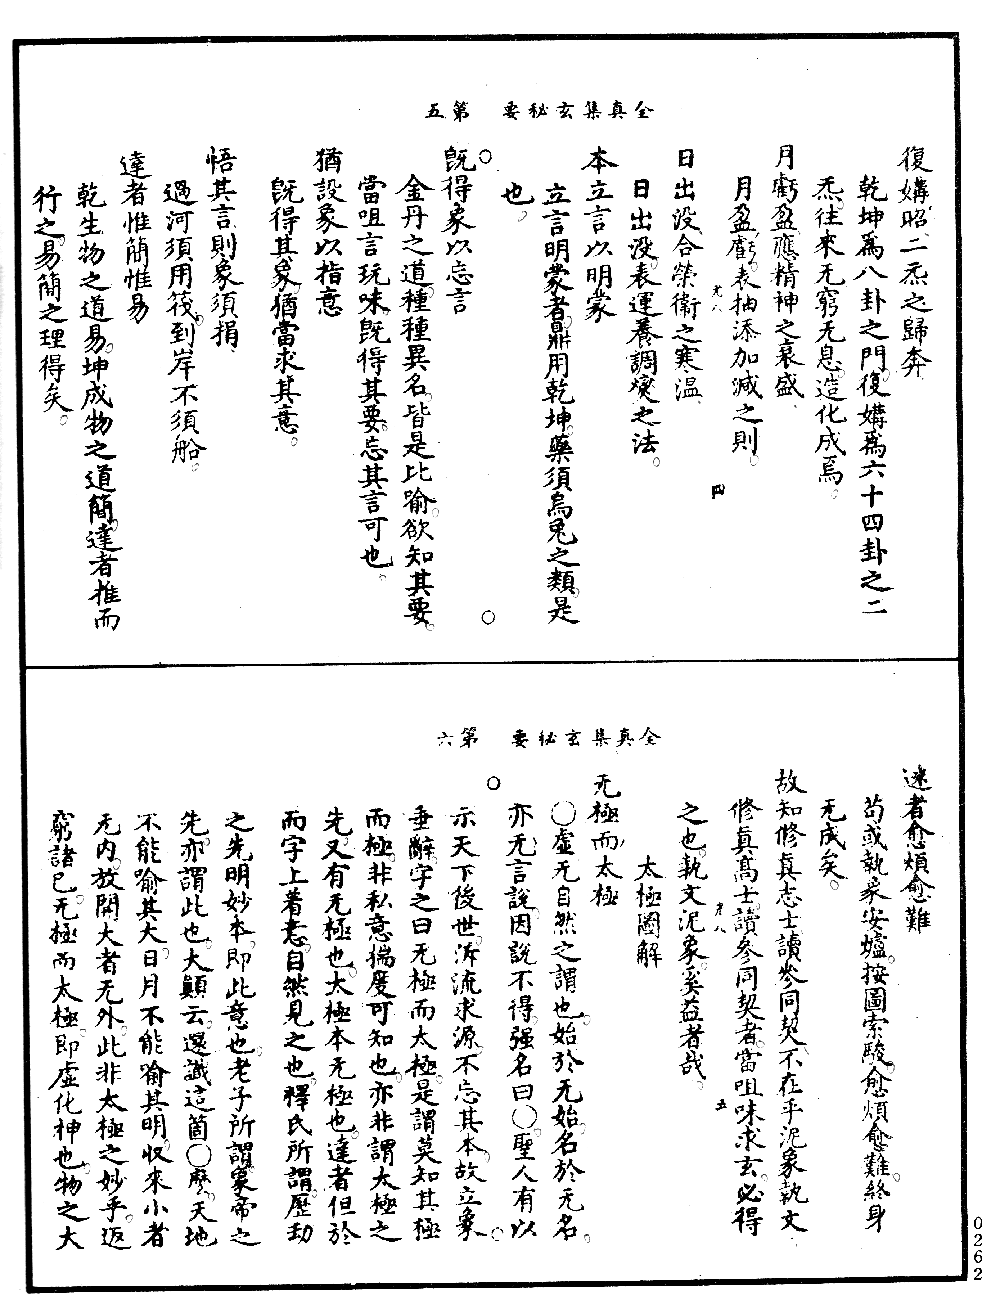 全真集玄秘要　第五
復媾昭二炁之歸奔
乾坤為八卦之門復媾為六十四卦之二
炁往來无窮无息造化成焉
月虧盈應精神之衰盛
月盈虧表抽添加減之則
日出没合榮衞之寒溫
日出没表運養調燮之法
本立言以明蒙
立言明蒙者鼎用乾坤藥須烏兎之類是
也
既得象以忘言
金丹之道種種異名皆是比喻欲知其要
當咀言玩味既得其要忘其言可也
猶設象以指意
既得其象猶當求其意
悟其言則象須捐
過河須用筏到岸不須船
達者惟簡惟易
乾生物之道易坤成物之道簡達者推而
行之易簡之理得矣
全真集玄秘要　第六
迷者愈煩愈難
苟或執象安爐按圖索駿愈煩愈難終身
无成矣
故知修真志士讀參同契不在乎泥象執文
修真高士讀參同契者當咀味求玄必得
之也執文泥象奚益者哉
太極圖解
无極而太極
○虛无自然之謂也始於无始名於无名
亦无言說因說不得强名曰○聖人有以
示天下後世泝流求源不忘其本故立象
垂辭字之曰无極而太極是謂莫知其極
而極非私意揣度可知也亦非謂太極之
先又有无極也太極本无極也達者但於
而字上着意自然見之也釋氏所謂歷劫
之先明妙本即此意也老子所謂象帝之
先亦謂此也大顛云還識這箇○麽天地
不能喻其大日月不能喻其明収來小者
无内放開大者无外此非太極之妙乎返
窮諸己无極而太極即虛化神也物之大
四
五
0262